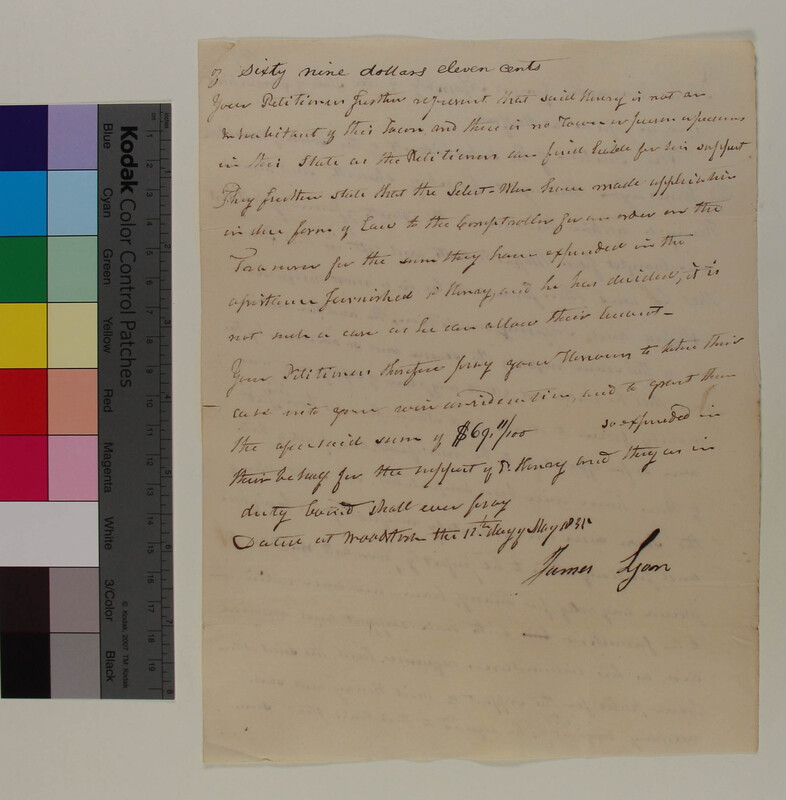 of Sixty nine dollars eleven cents
Your Petitioners further represent that said Henry is not an
inhabitant of this Town and there is no Town or person or persons
in this State as the Petitioners can find liable for his support
They further state that the Select-Men have made application
in due form of Law to the Comptroller for an order on the
Treasurer for the sum they have expended in the
assistance furnished sd Henry, and he has decided, it is
not such a case as he can allow their Account—
Your Petitioners therefore pray your Honours to take their
case into your wise consideration, and to grant them
the aforesaid sum of $69,11/100 so expended in
their behalf for the support of sd Henry and they as in
duty bound shall ever pray
Dated at Woodstock the 12th day of May 1831
James Lyon
Kodak Color Control Patches
Blue
Cyan
Green
Yellow
Red
Magenta
White
3/Color
Black
© Kodak, 2007 TM: Kodak